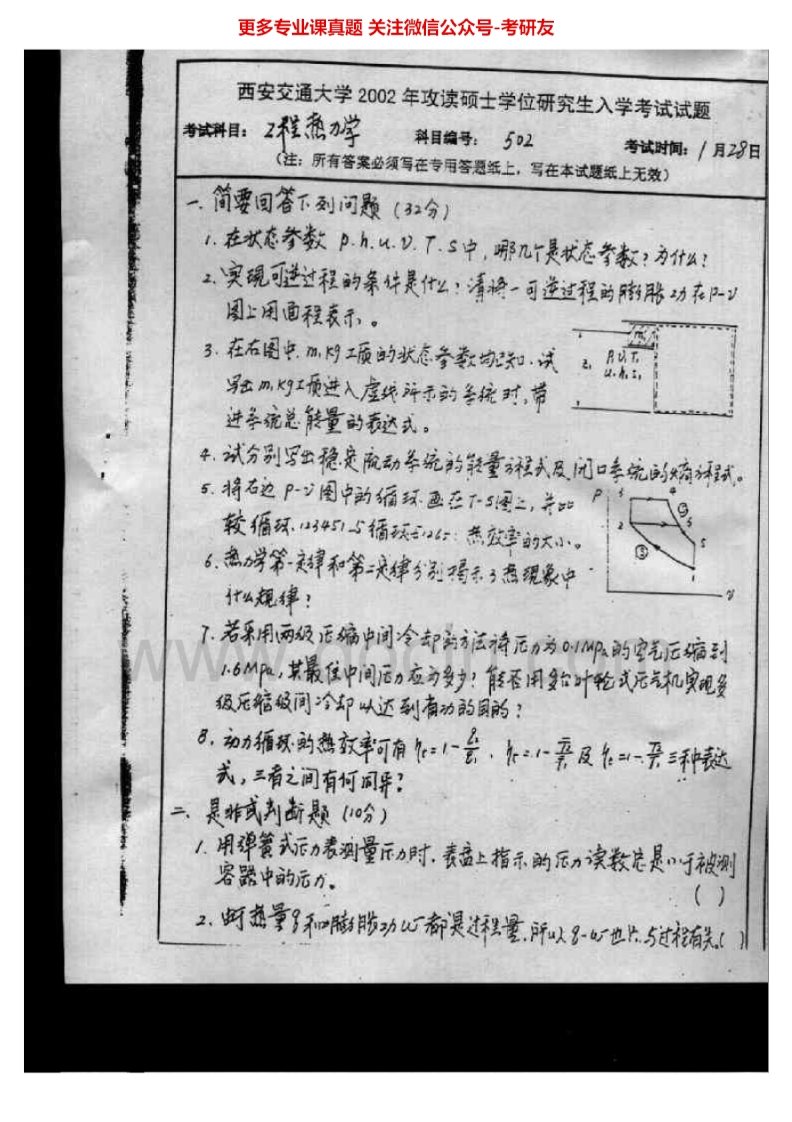 更多专业课真题 关注微信公众号-考研友
西安交通大学2002年攻读硕士学位研究生入学考试试题
考试科目：工程热力学 科目编号：502 考试时间：1月28日
（注：所有答案必须写在专用答题纸上，写在本试题纸上无效）
一、简要回答下列问题（32分）
1. 在状态参数 p.h.u.v.T.s中，哪几个是状态参数？为什么？
2. 实现可逆过程的条件是什么？请将一可逆过程的膨胀功在p-v
图上用面积表示。
3. 在右图中，m,kg工质的状态参数均已知，试
写出m,kg工质进入虚线所示的系统时，带
进系统总能量的表达式。
4. 试分别写出稳定流动系统的能量方程式及闭口系统的熵方程式。
5. 将右边 p-v图中的循环画在T-s图上，并比
较循环123451与循环 热效率的大小。
6. 热力学第一定律和第二定律分别揭示了热现象中
什么规律？
p 3 4 2 6 5 1 v
7. 若采用两级压缩中间冷却的方法将压力为0.1MPa的空气压缩到
1.6MPa，其最佳中间压力应为多少？能否用多台叶轮式压气机实现多
级压缩级间冷却以达到省功的目的？
8. 动力循环的热效率可有 及 三种表达
式，三者之间有何同异？
二、是非式判断题（10分）
1. 用弹簧式压力表测量压力时，表盘上指示的压力读数总是小于被测
容器中的压力。
( )
2. 热量q和膨胀功w都是过程量，所以q-w也 与过程有关。( )